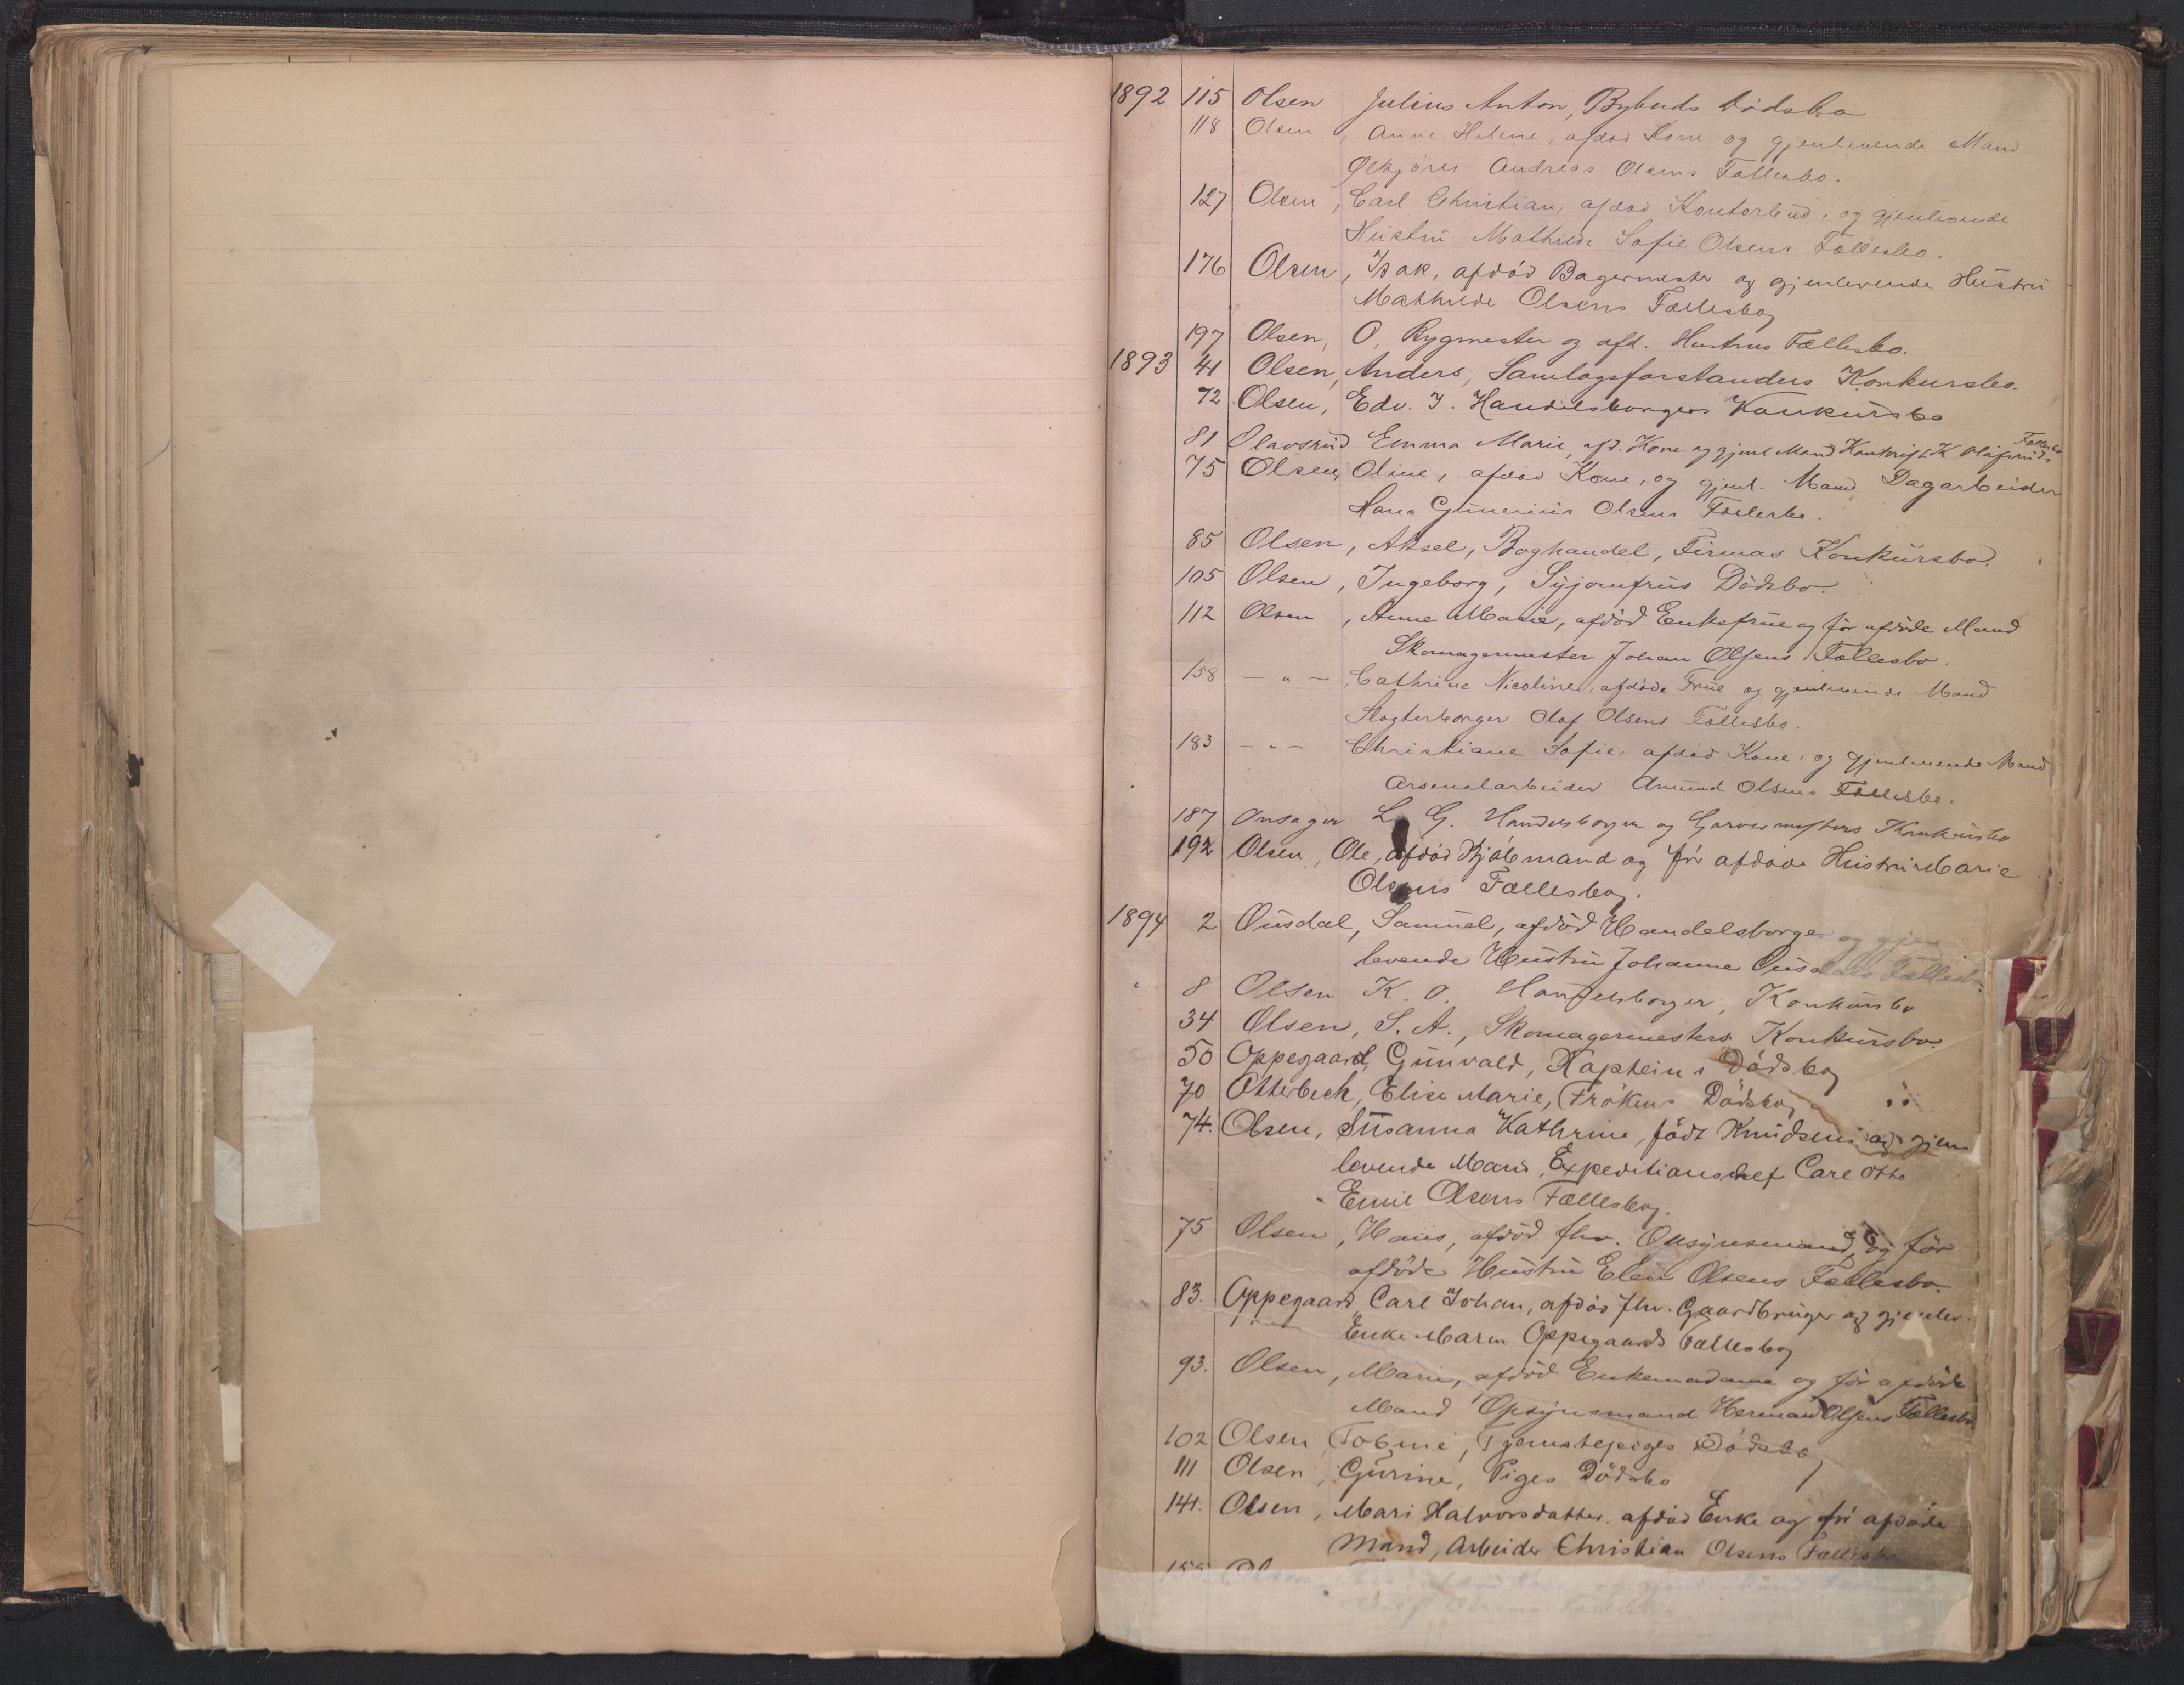 1892 115 Olsen Julius Anton, Bybuds Dødsbo
118 Olsen, Anne Helene, afdød Kone og gjenlevende Mand
Ølkjører Andreas Olsens Fællesbo.
127 Olsen, Carl Christian, afdød Kontorbud, og gjenlevende
Hustru Mathilde Sofie Olsens Fællesbo.
176 Olsen, Isak, afdød Bagermester og gjenlevende Hustru
Mathilde Olsens Fællesbo
197 Olsen, O, Bygmester og afd. Hustrus Fællesbo.
1893 41 Olsen, Anders, Samlagsforstanders Konkursbo.
72 Olsen, Edv. J. Handelsborgers Konkursbo
81 Olavsrud Emma Marie, afd. Kone og gjenl Mand K Olafsruds Fællesbo
75 Olsen, Oline, afdød Kone, og gjenl. Mand Dagarbeider
Hans Gunerius Olsens Fællesbo.
85 Olsen, Aksel, Boghandel, Firmas Konkursbo.
105 Olsen, Ingeborg, Syjomfrus Dødsbo.
112 Olsen, Anne Marie, afdød Enkefrue og før afdøde Mand
Skomagermester Johan Olsens Fællesbo.
158 — " — , Cathrine Nicoline, afdøde Frue og gjenlevende Mand
Slagterborger Olaf Olsens Fællesbo.
183 — " — Christiane Sofie, afdød Kone, og gjenlevende Mand
Arsenalarbeider Amund Olsens Fællesbo.
187 Onsager L. G. Handelsborger og Garvermesters Konkursbo
192 Olsen, Ole, afdød Kjøbmand og før afdøde Hustru Marie
Olsens Fællesbo.
1894 2 Ousdal, Samuel, afdød Handelsborger og gjen-
levende Hustru Johanne Ousdals Fællesbo.
8 Olsen K. O. Handelsborger, Konkursbo
34 Olsen, S. A., Skomagermesters Konkursbo.
50 Oppegaard, Gunvald, Kapteins Dødsbo
70 Otterbech, Elise Marie, Frøkens Dødsbo
74. Olsen, Susanna Kathrine, født Knudsen og gjen
levende Mand, Expeditionschef Carl Otto
Emil Olsens Fællesbo.
75 Olsen, Hans, afdød fhv. Opsynsmand, og før
afdøde Hustru Elen Olsens Fællesbo.
83. Oppegaard, Carl Johan, afdød fhv. Gaardbruger og gjenlev.
Enke Maren Oppegaards Fællesbo
93. Olsen, Marie, afdød Enkemadame og før afdøde
Mand Opsynsmand Herman Olsens Fællesbo
102 Olsen Tobine, Tjenstepiges Dødsbo
111 Olsen, Gurine, Piges Dødsbo
141. Olsen, Mari Halvorsdatter, afdød Enke og før afdøde
Mand, Arbeider Christian Olsens Fællesbo